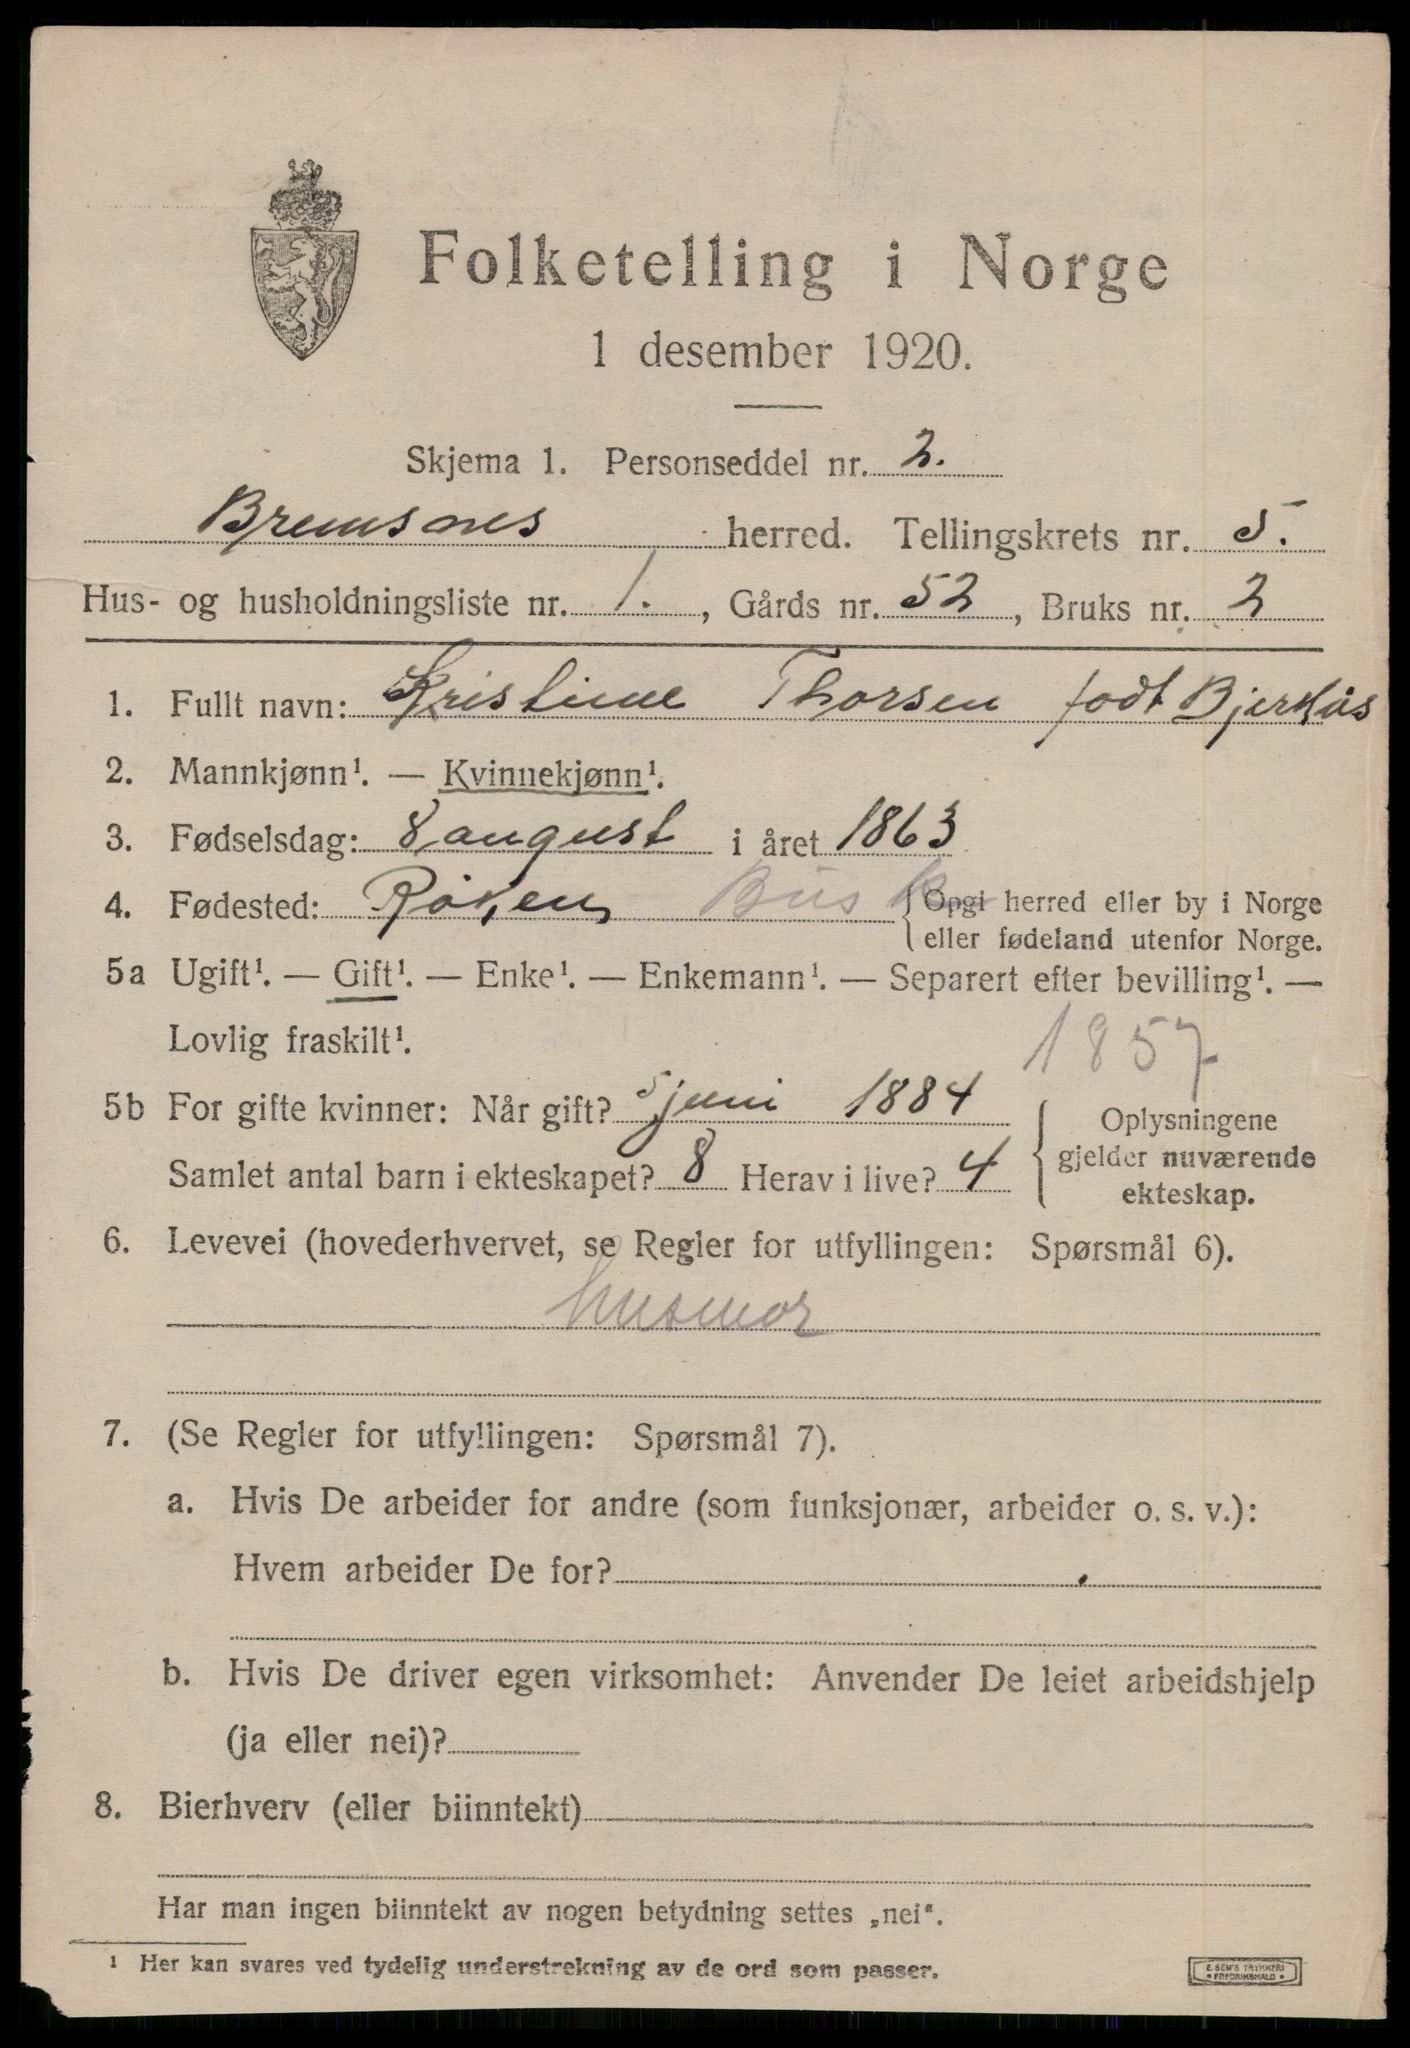 Folketelling i Norge
1 desember 1920.
Skjema 1. Personseddel nr. 2.
Bremsnes herred. Tellingskrets nr. 5.
Hus- og husholdningsliste nr. 1. , Gårds nr. 52 , Bruks nr. 2
1. Fullt navn: Kristine Thorsen født Bjerkås
2. Mannkjønn¹. — Kvinnekjønn¹.
3. Fødselsdag: 8 august i året 1863
4. Fødested: Røken Busk {Opgi herred eller by i Norge
eller fødeland utenfor Norge.
5a Ugift¹. — Gift¹. — Enke¹. — Enkemann¹. — Separert efter bevilling¹. —
Lovlig fraskilt¹.
1857
5b For gifte kvinner: Når gift? 5 juni 1884
Samlet antal barn i ekteskapet? 8 Herav i live? 4
{ Oplysningene
gjelder nuværende
ekteskap.
6. Levevei (hovederhvervet, se Regler for utfyllingen: Spørsmål 6).
husmor
7. (Se Regler for utfyllingen: Spørsmål 7).
a. Hvis De arbeider for andre (som funksjonær, arbeider o. s. v.):
Hvem arbeider De for?
b. Hvis De driver egen virksomhet: Anvender De leiet arbeidshjelp
(ja eller nei)?
8. Bierhverv (eller biinntekt)
Har man ingen biinntekt av nogen betydning settes „nei“.
¹ Her kan svares ved tydelig understrekning av de ord som passer.
E. SEM'S TRYKKERI
• FREDRIKSHALD •